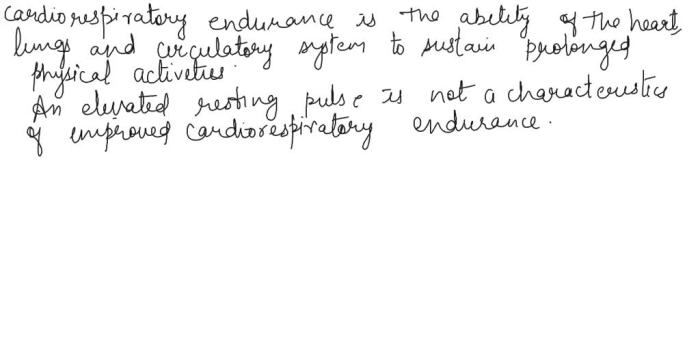 Cardiorespiratory endurance is the ability of the heart,
lungs and circulatory system to sustain prolonged
physical activities.
An elevated resting pulse is not a characteristics
of improved cardiorespiratory endurance.